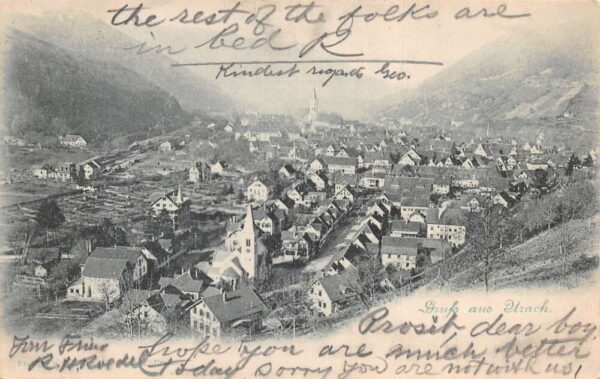 the rest of the folks are
in bed R
Kindest regards Geo.
Gruß aus Urach.
Prosit, dear boy.
I hope you are much better
Today sorry you are not with us,
R. H. Roeder